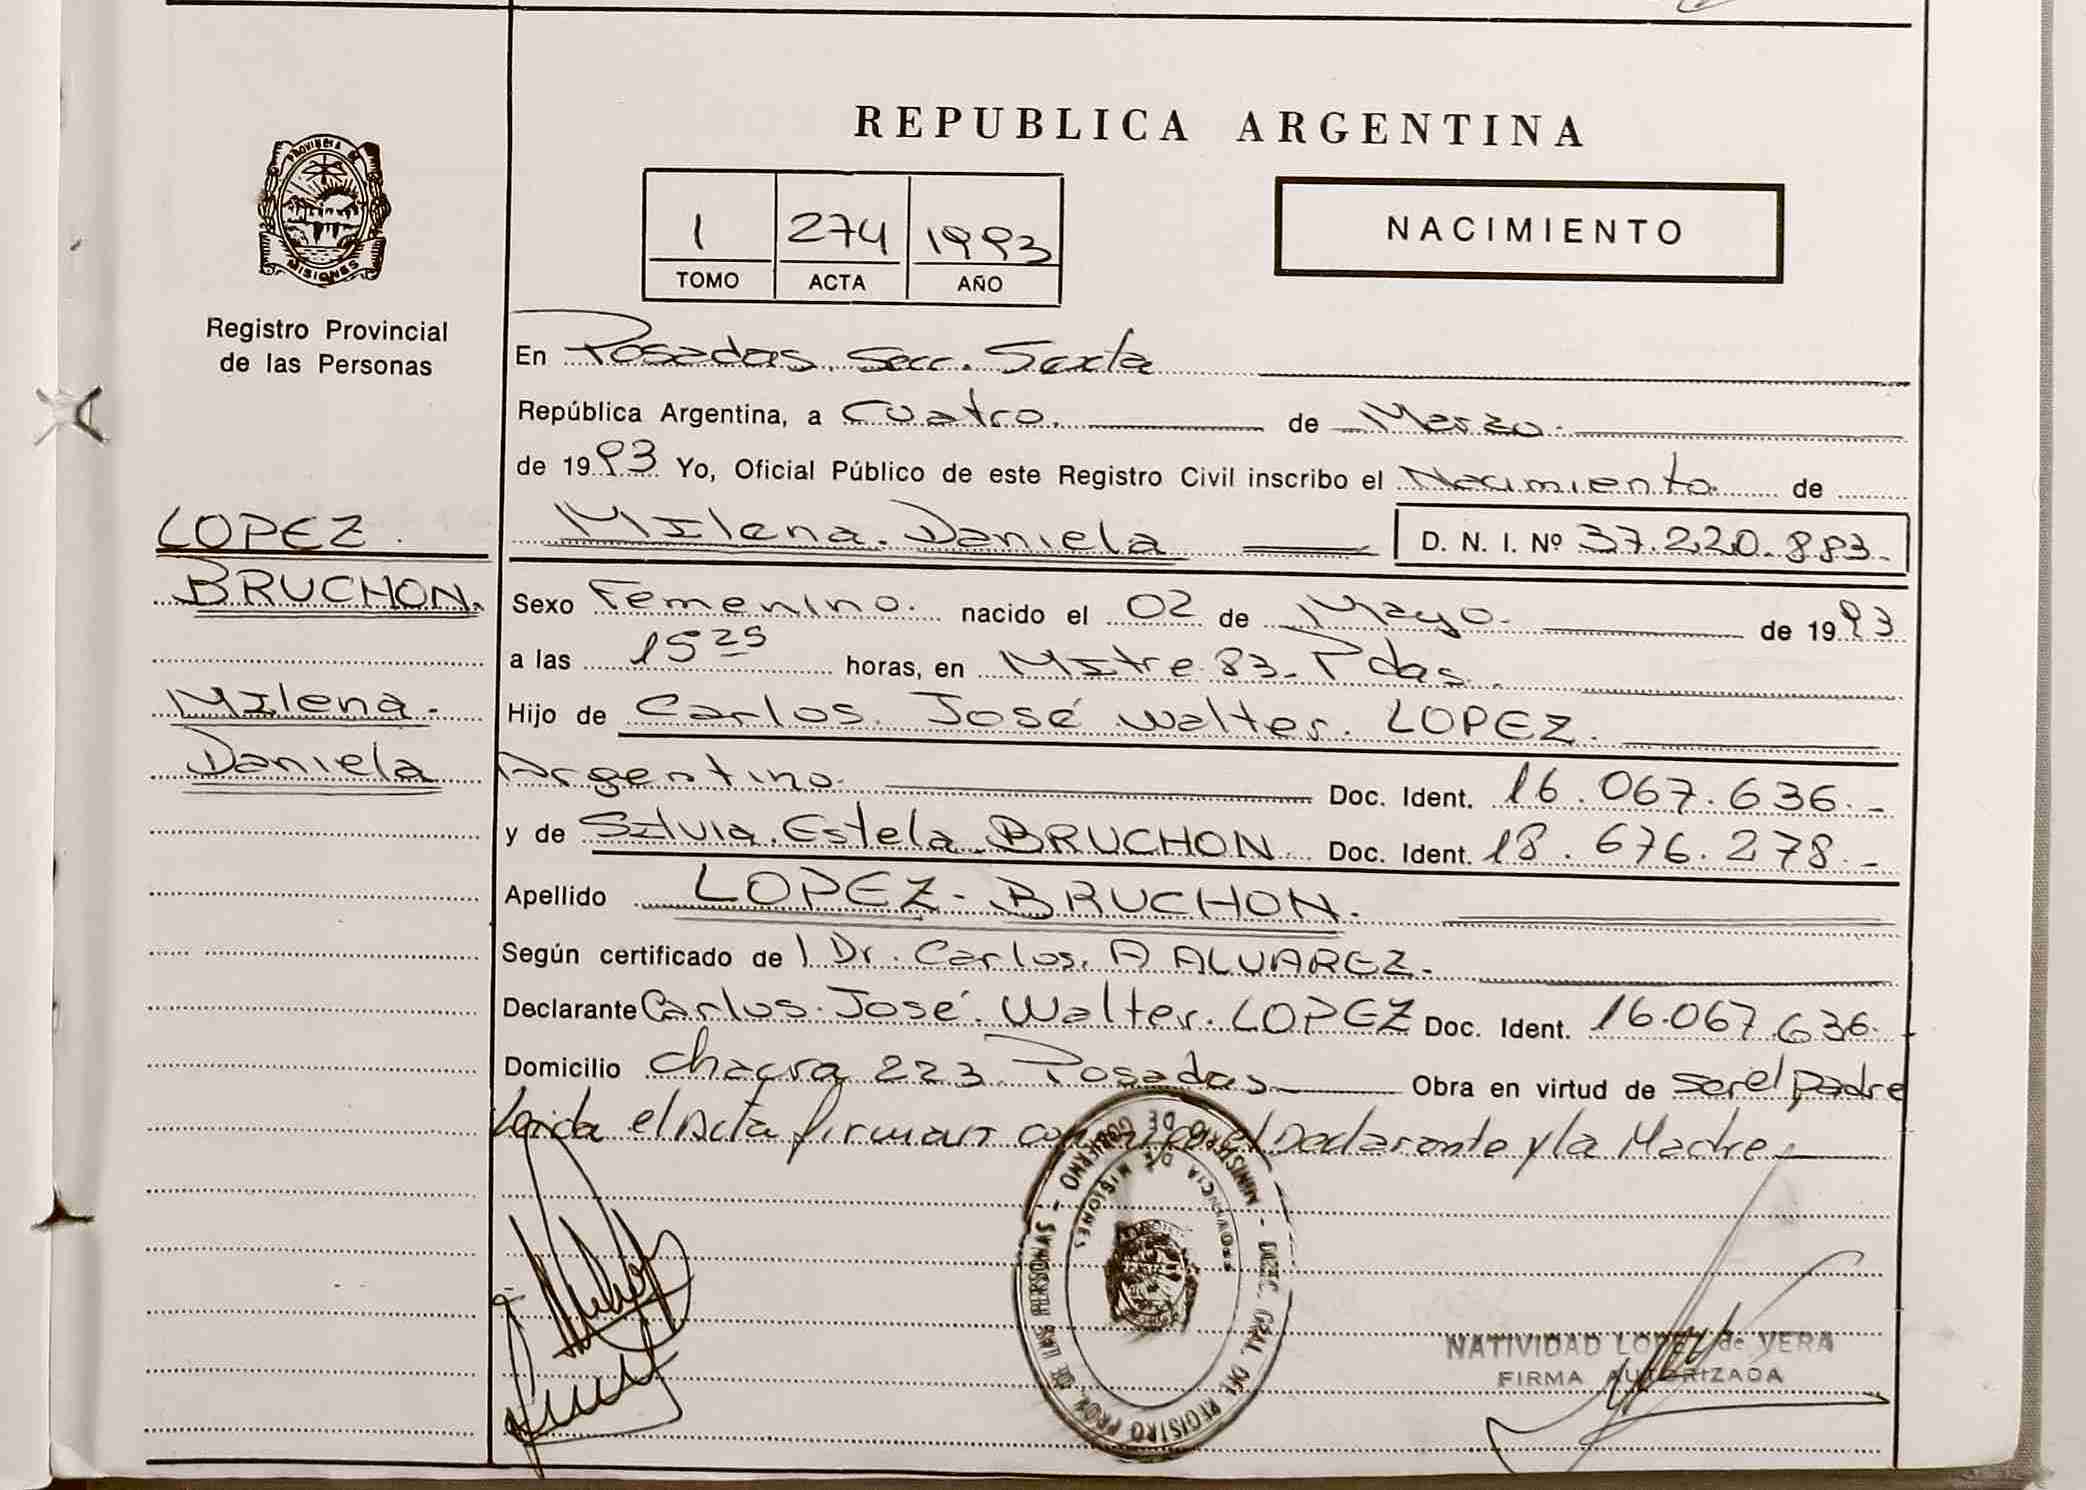 REPUBLICA ARGENTINA
PROVINCIA DE
MISIONES
Registro Provincial
de las Personas
1 274 1993
TOMO ACTA AÑO
NACIMIENTO
En Posadas. Secc. Sexta
República Argentina, a Cuatro. de Marzo.
de 1993 Yo, Oficial Público de este Registro Civil inscribo el Nacimiento de
LOPEZ.
BRUCHON.
Milena.
Daniela
Milena. Daniela D. N. I. Nº 37.220.883.
Sexo Femenino. nacido el 02 de Mayo. de 1993
a las 15 25 horas, en Mitre 83. Pdas.
Hijo de Carlos. José Walter. LOPEZ.
Argentino. Doc. Ident. 16.067.636.-
y de Silvia. Estela. BRUCHON. Doc. Ident. 18.676.278.-
Apellido LOPEZ - BRUCHON.
Según certificado de l Dr. Carlos. A ALVAREZ.
Declarante Carlos. José. Walter. LOPEZ Doc. Ident. 16.067.636.
Domicilio Chacra 223. Posadas Obra en virtud de ser el padre
Leida el Acta firman conmigo el Declarante y la Madre.
MINISTERIO DE GOBIERNO - DIREC. GRAL. DEL REGISTRO PROV. DE LAS PERSONAS -
PROVINCIA DE MISIONES
NATIVIDAD LOPEZ de VERA
FIRMA AUTORIZADA